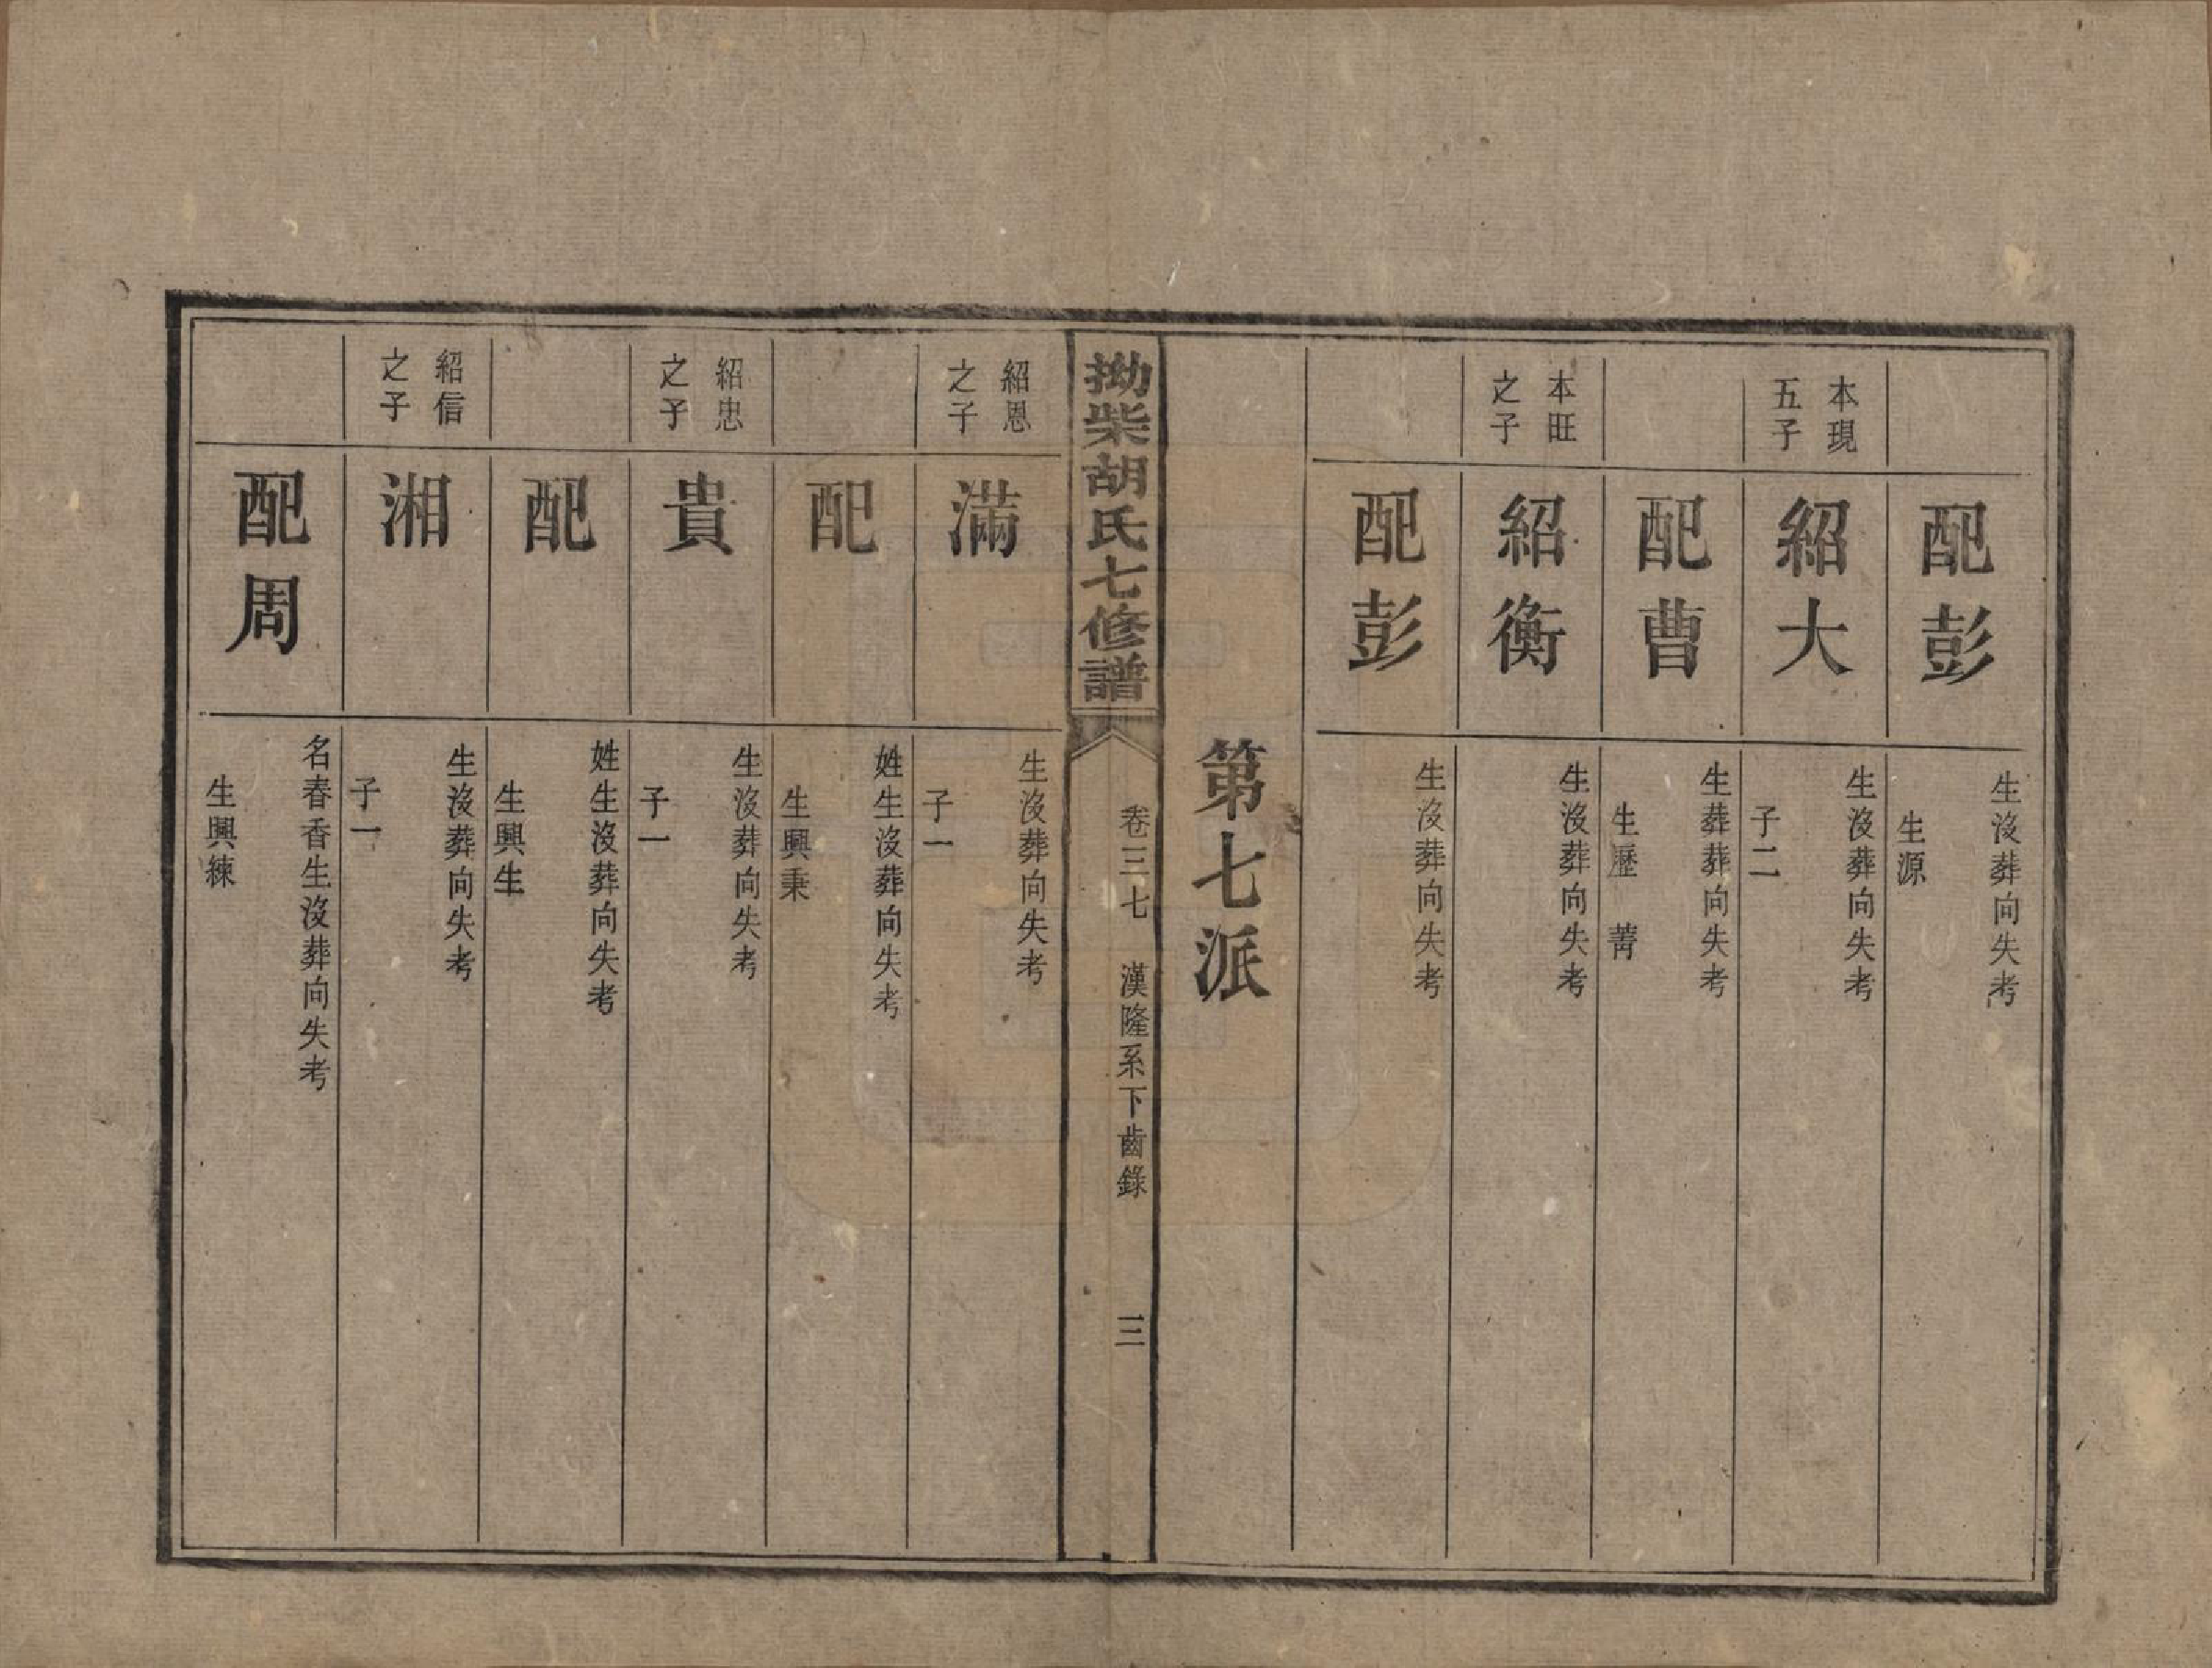 配彭
生沒葬向失考
生源
本現
五子
紹大
生沒葬向失考
子二
配曹
生葬葬向失考
生歷 菁
本旺
之子
紹衡
生沒葬向失考
配彭
生沒葬向失考
第七派
拗柴胡氏七修譜
卷三七 漢隆系下齒錄
三
紹恩
之子
滿
生沒葬向失考
子一
配
姓生沒葬向失考
生興秉
紹忠
之子
貴
生沒葬向失考
子一
配
姓生沒葬向失考
生興生
紹信
之子
湘
生沒葬向失考
子一
配周
名春香生沒葬向失考
生興練